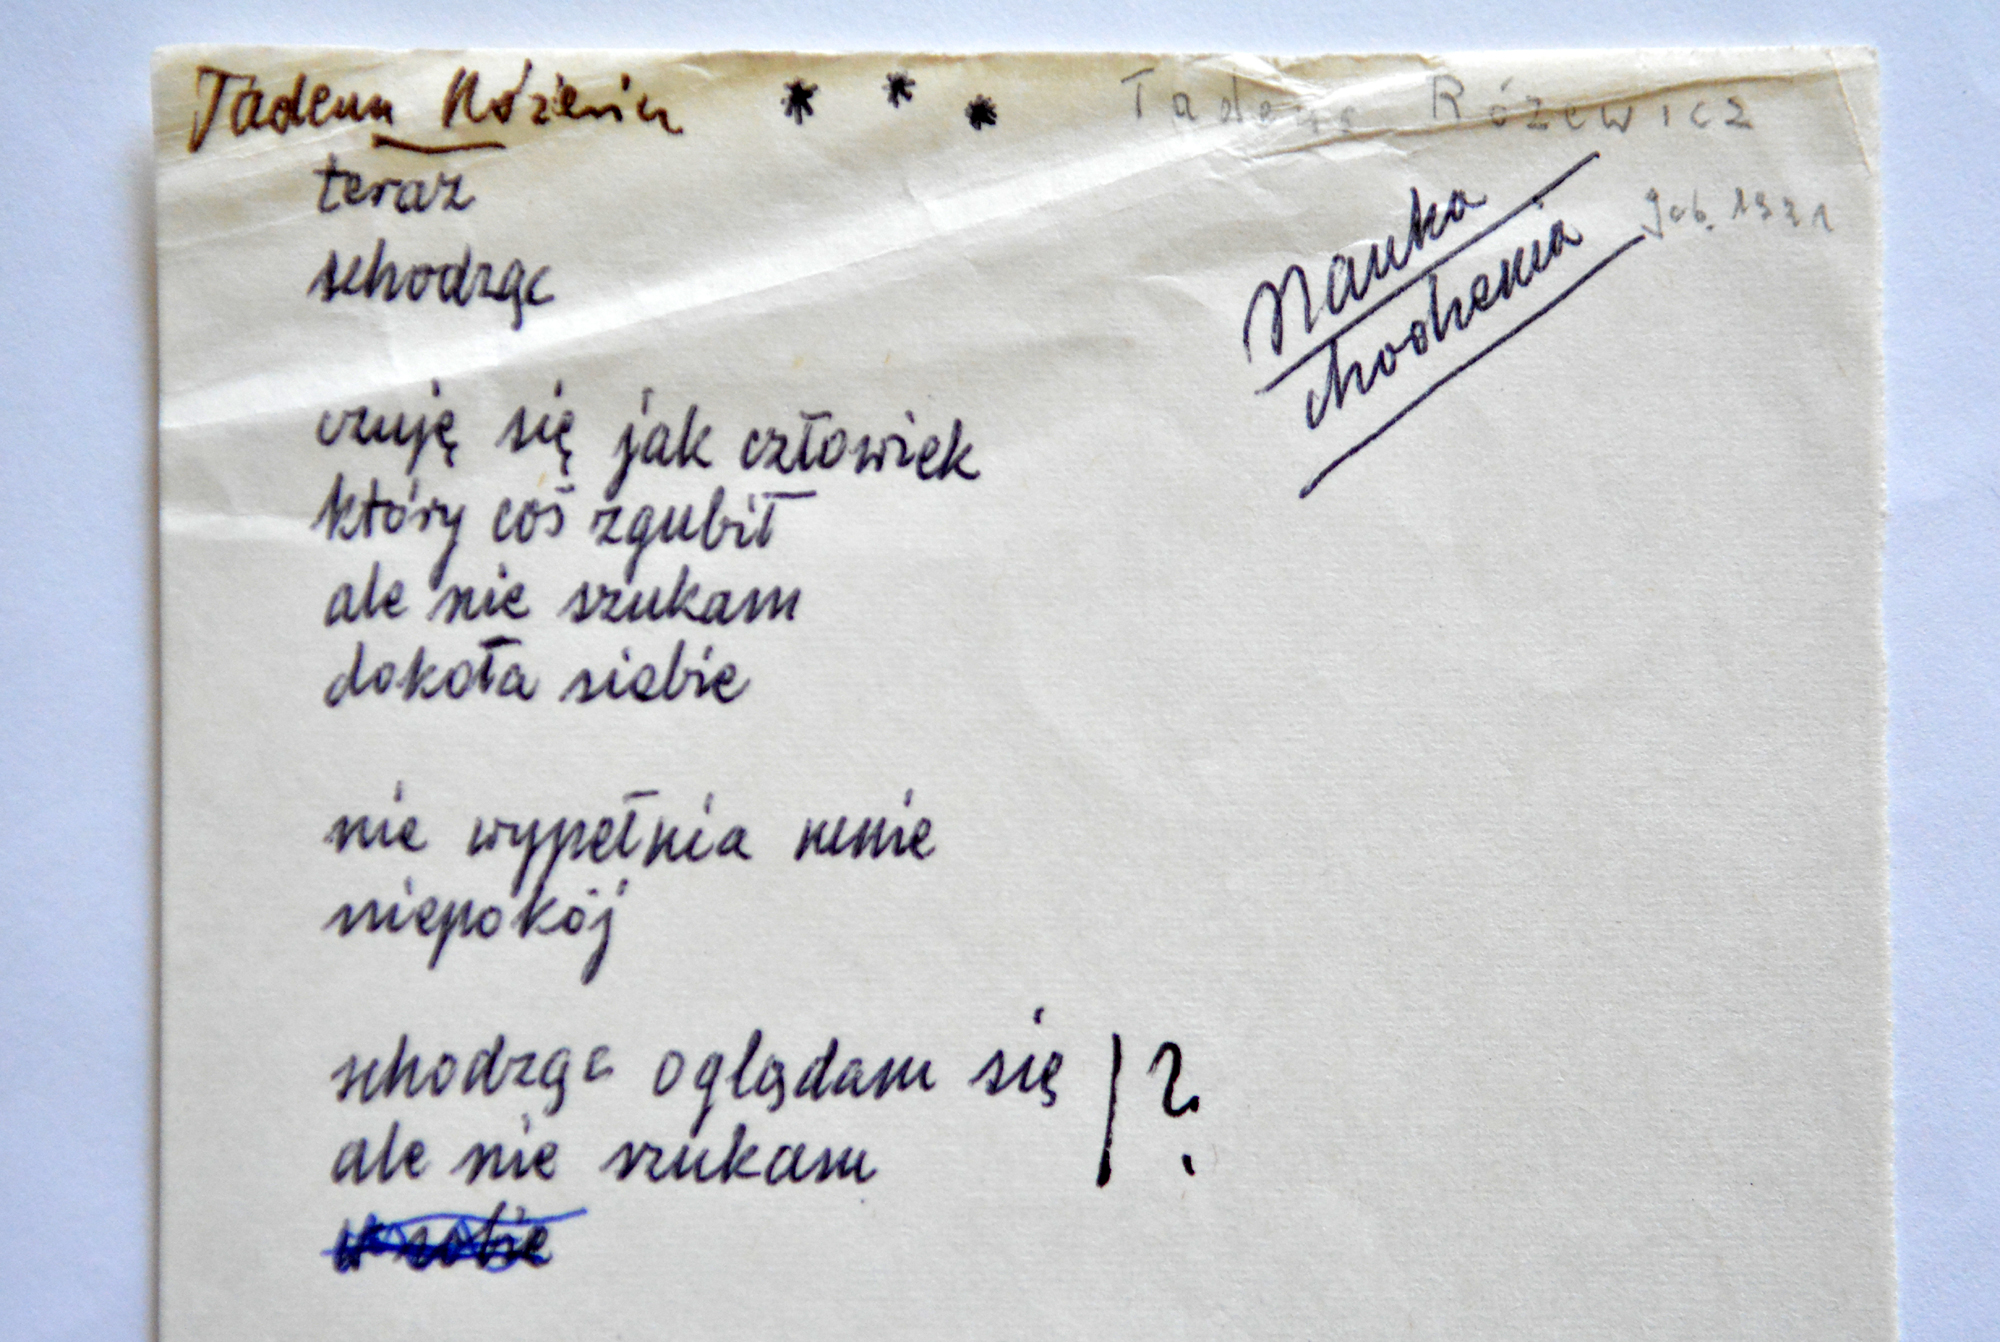 Tadeusz Różewicz * * * Tadeusz Różewicz
teraz
schodząc
Nauka
chodzenia
czuję się jak człowiek
który coś zgubił
ale nie szukam
dokoła siebie
nie wypełnia mnie
niepokój
schodząc oglądam się
ale nie szukam
?
w sobie